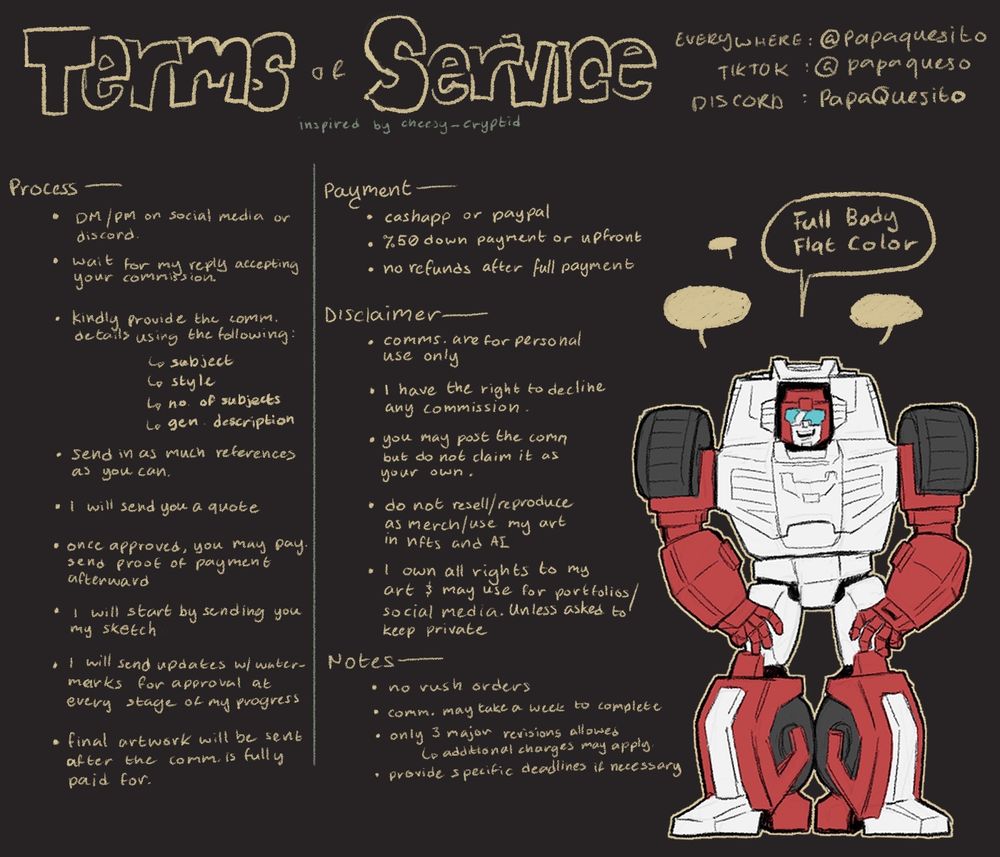 Terms of Service
inspired by cheesy_cryptid
EVERYWHERE : @Papaquesito
TIKTOK : @ papaqueso
DISCORD : PapaQuesito
Process
• DM/PM on social media or
discord.
• wait for my reply accepting
your commission.
• kindly provide the comm.
details using the following:
↳ subject
↳ style
↳ no. of subjects
↳ gen. description
• send in as much references
as you can.
• I will send you a quote
• once approved, you may pay.
send proof of payment
afterward
• I will start by sending you
my sketch
• I will send updates w/ water-
marks for approval at
every stage of my progress
• final artwork will be sent
after the comm. is fully
paid for.
Payment
• cashapp or paypal
• %50 down payment or upfront
• no refunds after full payment
Disclaimer
• comms. are for personal
use only
• I have the right to decline
any commission.
• you may post the comm
but do not claim it as
your own.
• do not resell/reproduce
as merch/use my art
in nfts and AI
• I own all rights to my
art & may use for portfolios/
social media. Unless asked to
keep private
Notes
• no rush orders
• comm. may take a week to complete
• only 3 major revisions allowed
↳ additional charges may apply.
• provide specific deadlines if necessary
Full Body
Flat Color